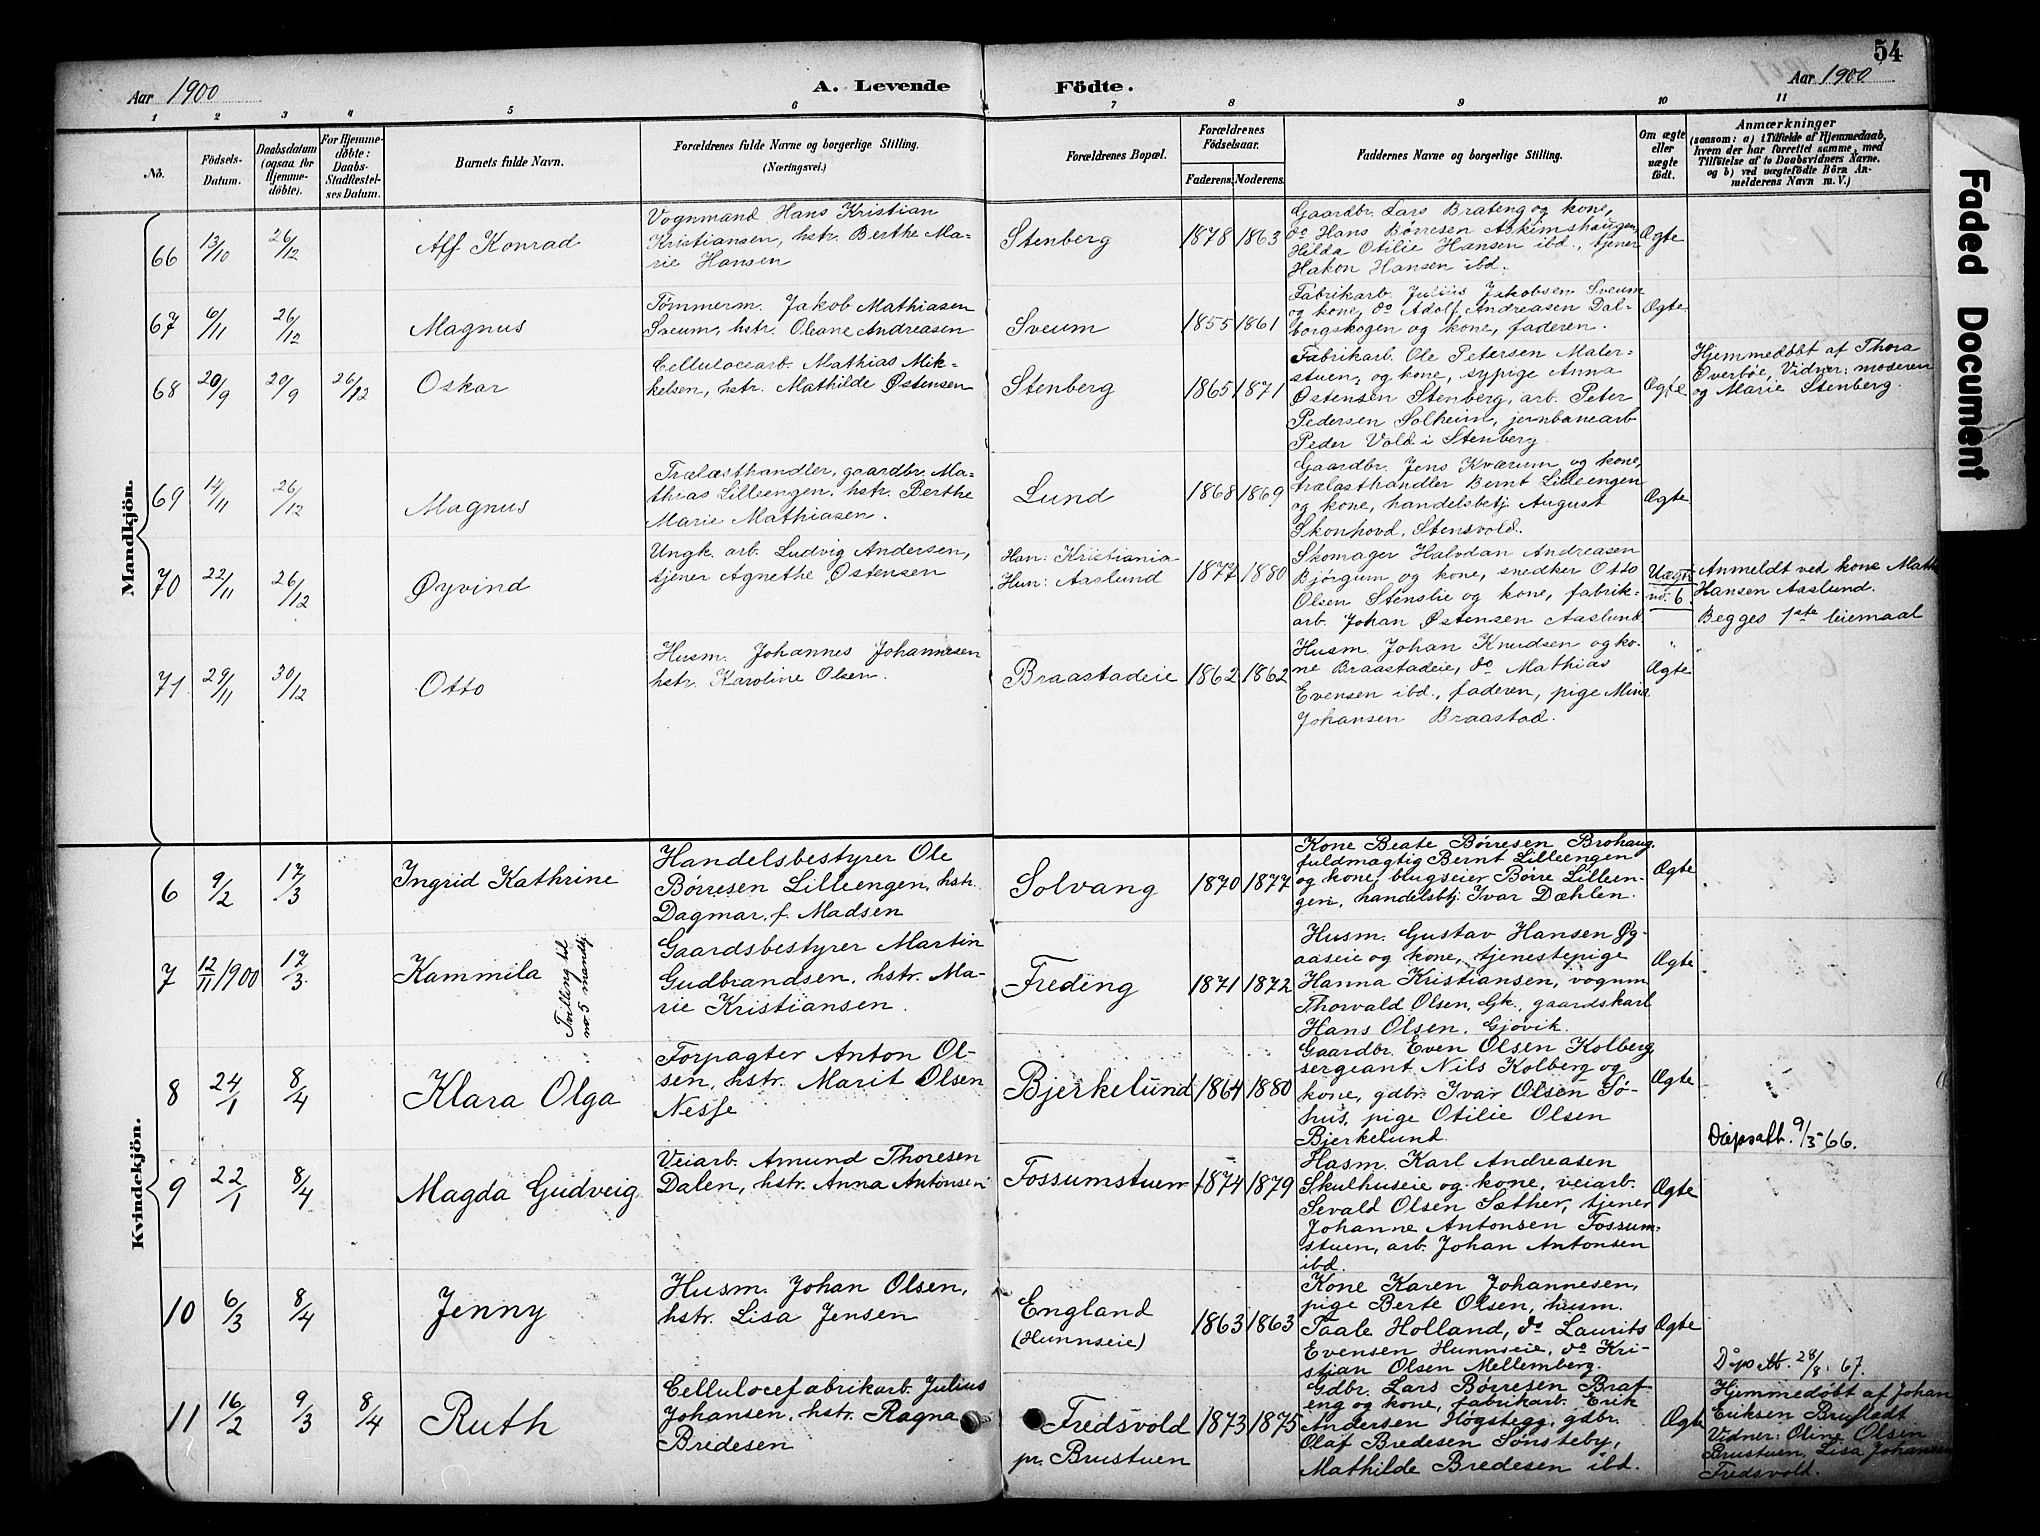 54
Aar 1900
A. Levende Födte.
Aar 1900
1 2 3 4 5 6 7 8 9 10 11
No.
Födsels-
Datum.
Daabsdatum
(ogsaa for
Hjemme-
döbte).
For Hjemme-
döbte:
Daabs-
Stadfæstel-
ses Datum.
Barnets fulde Navn.
Forældrenes fulde Navne og borgerlige Stilling.
(Næringsvei.)
Forældrenes Bopæl.
Forældrenes
Födselsaar.
Faderens. Moderens.
Faddernes Navne og borgerlige Stilling.
Om ægte
eller
uægte
födt.
Anmærkninger
(saasom: a) i Tilfælde af Hjemmedaab,
hvem der har forrettet samme, med
Tilföielse af to Daabsvidners Navne.
og b) ved uægtefödte Börn An-
melderens Navn m. V.)
Mandkjön.
66 13/10 26/12
Alf Konrad
Vognmand Hans Kristian
Kristiansen, hstr. Berthe Ma-
rie Hansen
Stenberg
1878 1863
Gaardbr. Lars Brateng og kone,
do Hans Børresen Askimshaugen,
Hilda Otilie Hansen ibd., tjener
Hakon Hansen ibd.
Ægte
67 6/11 26/12
Magnus
Tømmerm. Jakob Mathiasen
Sveum, hstr. Oleane Andreasen
Sveum
1855 1861
Fabrikarb. Julius Jakobsen Sveum
og kone, do Adolf Andreasen Dal-
borgskogen og kone, faderen.
Ægte
68 20/9 20/9 26/12
Oskar
Cellulocearb. Mathias Mik-
kelsen, hstr. Mathilde Østensen
Stenberg
1865 1871
Fabrikarb. Ole Petersen Maler-
stuen, og kone, sypige Anna
Østensen Stenberg, arb. Peter
Pedersen Solheim, jernbanearb.
Peder Vold i Stenberg.
Ægte
Hjemmedøbt af Thora
Øverbøe, Vidner: moderen
og Marie Stenberg.
69 14/11 26/12
Magnus
Trælasthandler, gaardbr. Ma-
thias Lilleengen, hstr. Berthe
Marie Mathiasen.
Lund
1868 1869
Gaardbr. Jens Kværum og kone,
trælasthandler Bernt Lilleengen
og kone, handelsbetj. August
Skonhovd, Stensvold.
Ægte
70 22/11 26/12
Øyvind
Ungk. arb. Ludvig Andersen,
tjener Agnethe Østensen
Han: Kristiania
Hun: Aaslund
1877 1880
Skomager Halvdan Andreasen
Bjørgum og kone, snedker Otto
Olsen Stenslie og kone, fabrik-
arb. Johan Østensen Aaslund
Uægte
no. 6.
Anmeldt ved kone Math.
Hansen Aaslund.
Begges 1ste leiemaal
71 29/11 30/12
Otto
Husm. Johannes Johannesen
hstr. Karoline Olsen.
Braastadeie
1862 1862
Husm. Johan Knudsen og ko-
ne Braastadeie, do Mathias
Evensen ibd., faderen, pige Mina
Johansen Braastad.
Ægte
Kvindekjön.
6 9/2 17/3
Ingrid Kathrine
Handelsbestyrer Ole
Børresen Lilleengen, hstr.
Dagmar, f. Madsen
Solvang
1870 1877
Kone Beate Børresen Brohaug,
fuldmægtig Bernt Lilleengen
og kone, brugseier Børre Lilleen-
gen, handelsbtj. Ivar Dæhlen.
Ægte
7 12/11 1900 17/3
Kammila
Tvilling til
no 5 mandkj.
Gaardsbestyrer Martin
Gudbrandsen, hstr. Ma-
rie Kristiansen.
Freding
1871 1872
Husm. Gustav Hansen Øg-
aaseie og kone, tjenestepige
Hanna Kristiansen, vognm.
Thorvald Olsen, Gk., gaardskarl
Hans Olsen, Gjøvik.
Ægte
8 24/1 8/4
Klara Olga
Forpagter Anton Ol-
sen, hstr. Marit Olsen
Nesse
Bjerkelund
1864 1880
Gaardbr. Even Olsen Kolberg
sergeant Nils Kolberg og
kone, gdbr. Ivar Olsen Sø-
hus, pige Otilie Olsen
Bjerkelund.
Ægte
Dåpsatt. 9/3-66.
9 22/1 8/4
Magda Gudveig
Veiarb. Amund Thoresen
Dalen, hstr. Anna Antonsen
Fossumstuen
1874 1879
Husm. Karl Andreasen
Skulhuseie og kone, veiarb.
Sevald Olsen Sæther, tjener
Johanne Antonsen Fossum-
stuen, arb. Johan Antonsen
ibd.
Ægte
10 6/3 8/4
Jenny
Husm. Johan Olsen,
hstr. Lisa Jensen
England
(Hunnseie)
1863 1863
Kone Karen Johannesen,
pige Berte Olsen, husm.
Taale Holland, do Laurits
Evensen Hunnseie, do Kri-
stian Olsen Mellemberg.
Ægte
Dåpsatt. 28/8. 67.
11 16/2 9/3 8/4
Ruth
Cellulocefabrikarb. Julius
Johansen, hstr. Ragna
Bredesen
Fredsvold
pr. Brustuen
1873 1875
Gdbr. Lars Børresen Brat-
eng og kone, fabrikarb. Erik
Andersen Høgstegg, gdbr.
Olaf Bredesen Sønsteby,
Mathilde Bredesen ibd.
Ægte
Hjemmedøbt af Johan
Eriksen Brufladt
Vidner: Oline Olsen
Brustuen, Lisa Johansen
Fredsvold.
Faded Document